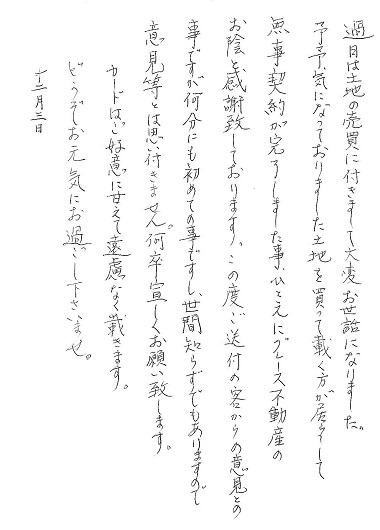 過日は土地の売買に付きまして大変お世話になりました。
予予気になっておりました土地を買って載く方が居らして
無事契約が完了しました事、ひとえにグレース不動産の
お陰と感謝致しております。この度ご送付の客からの意見との
事ですが何分にも初めての事ですし、世間知らずでもありますので
意見等とは思い付きません。何卒宜しくお願い致します。
カードはご好意に甘えて遠慮なく載きます。
どうぞお元気にお過ごし下さいませ。
十二月三日